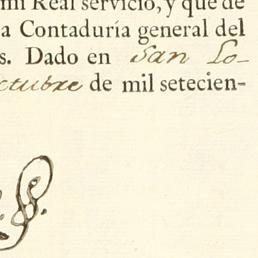 mi Real servicio, y que de
a Contaduría general del
s. Dado en San Lo-
ctubre de mil setecien-